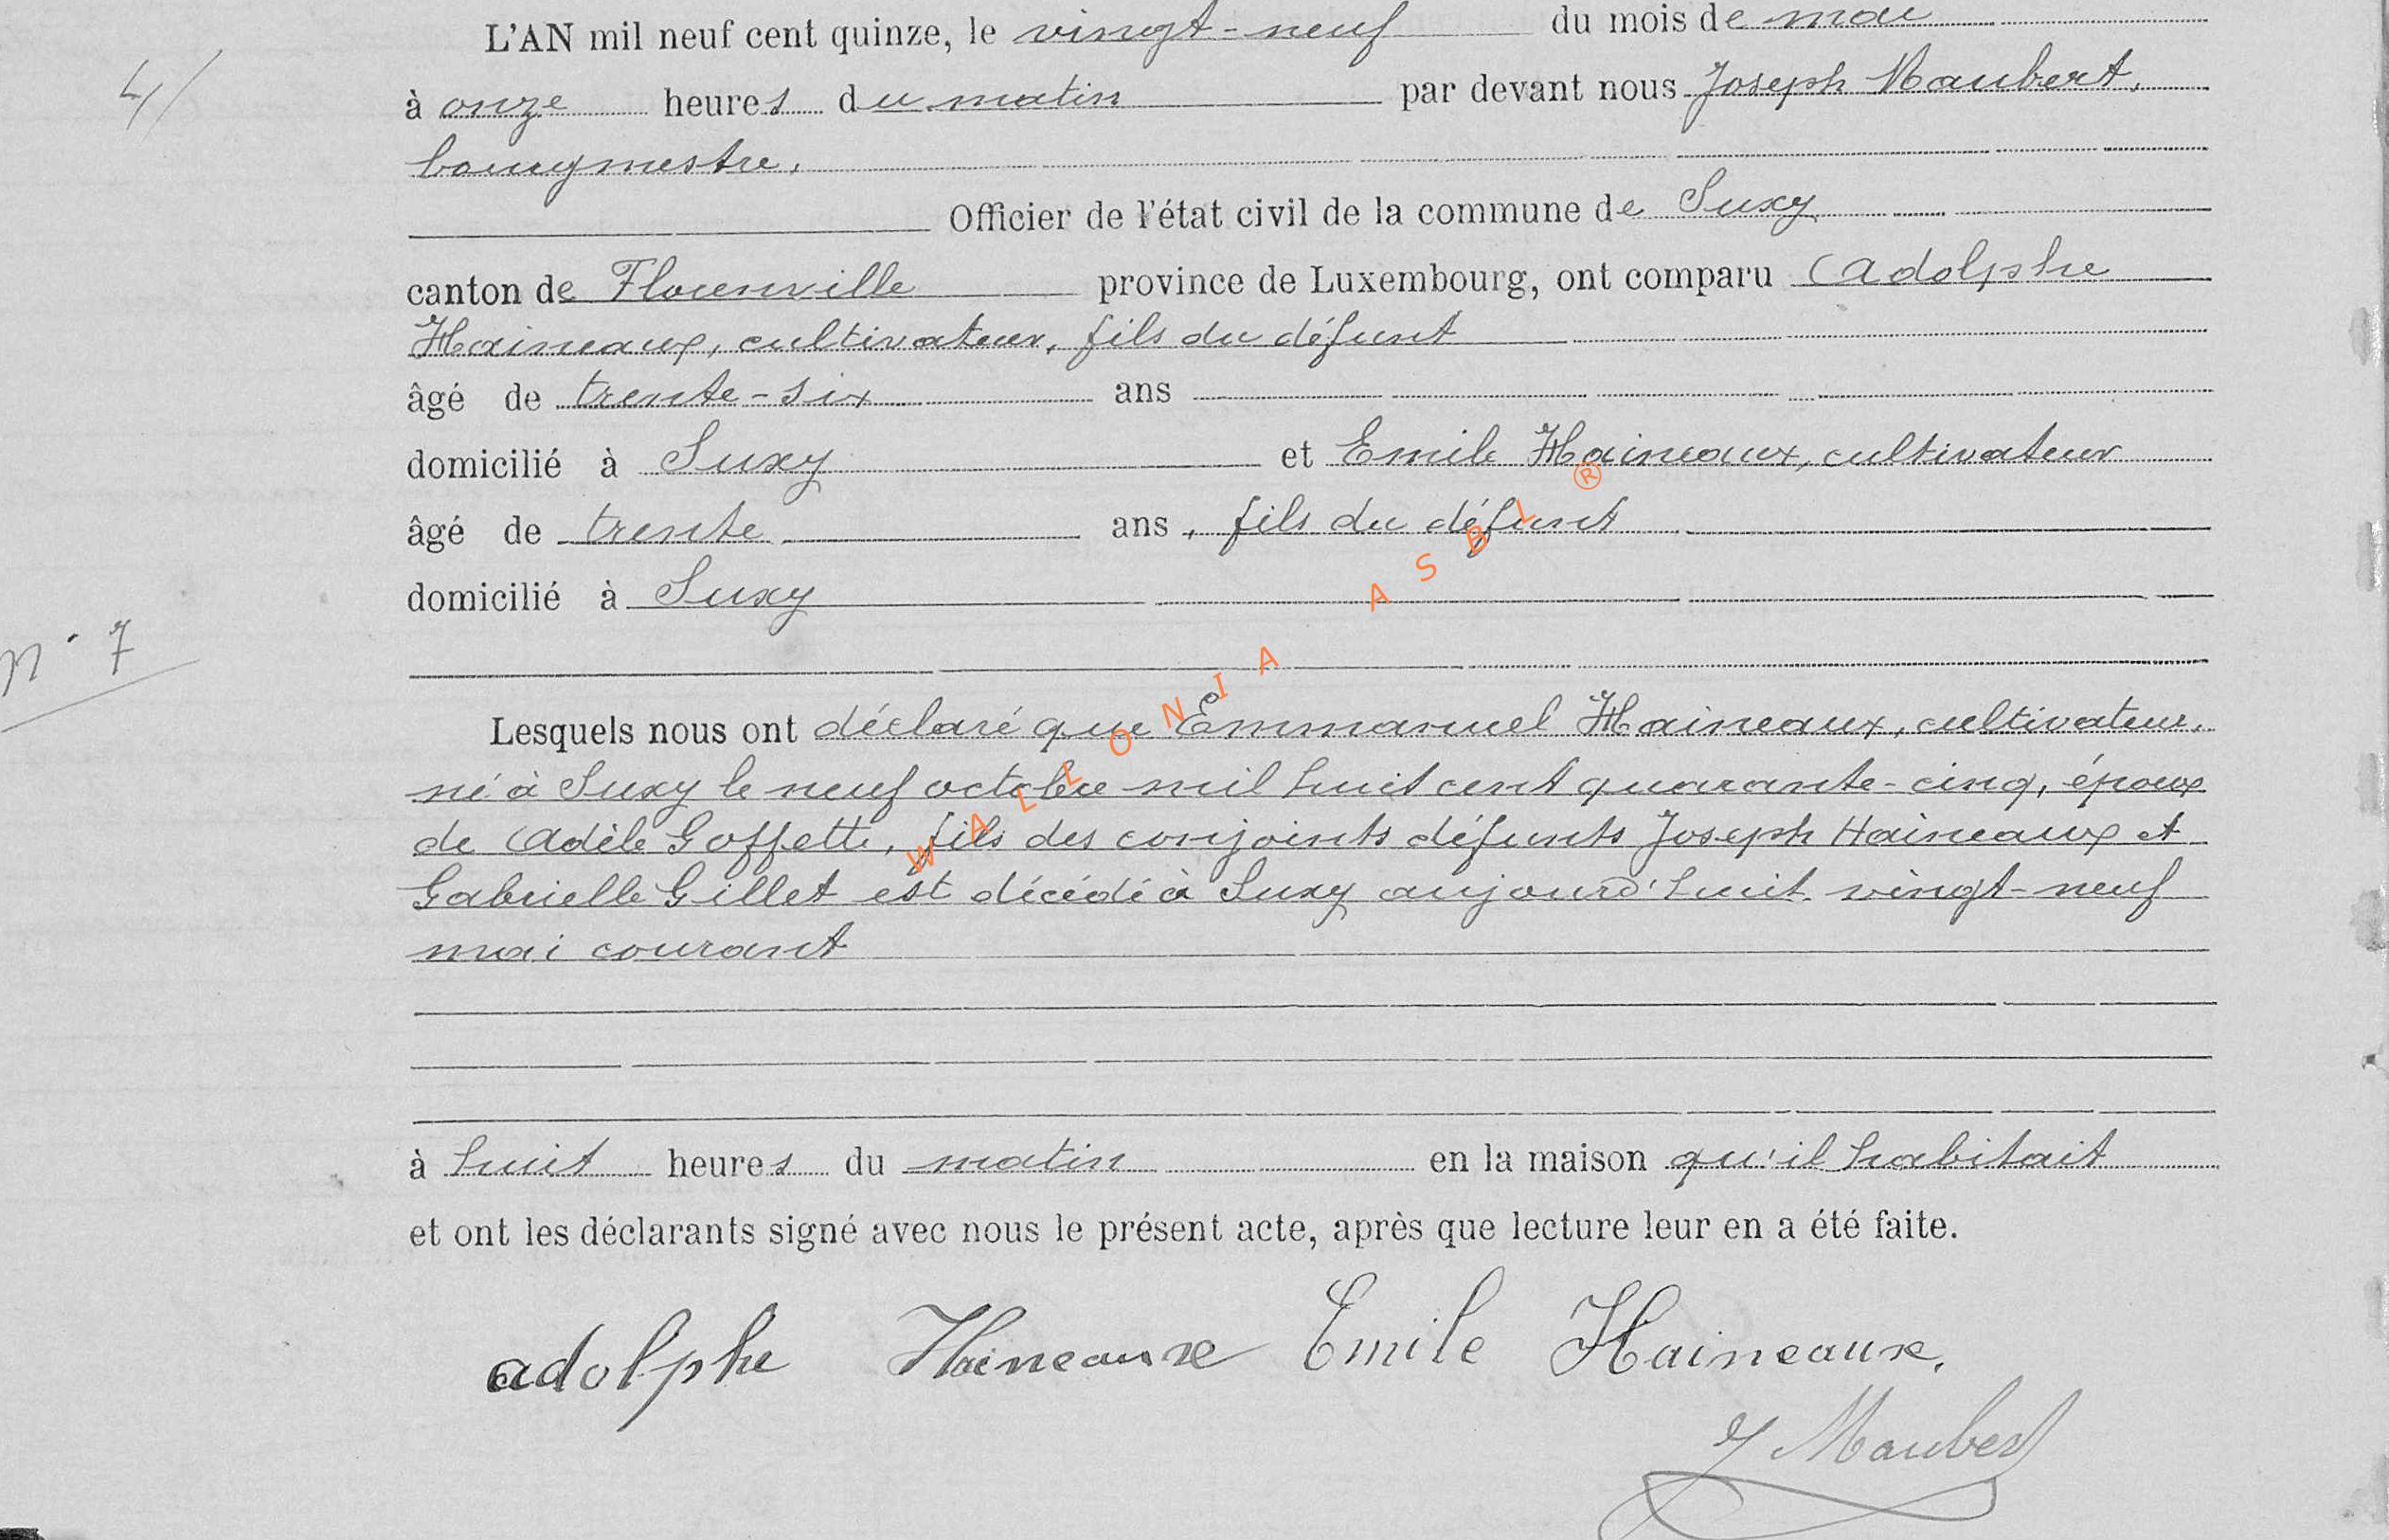 L'AN mil neuf cent quinze, le vingt-neuf du mois de mai
4/
à onze heures du matin par devant nous Joseph Maubert,
bourgmestre,
Officier de l'état civil de la commune de Suxy
canton de Florenville province de Luxembourg, ont comparu Adolphe
Haineaux, cultivateur, fils du défunt
âgé de trente-six ans
domicilié à Suxy et Emile Haineaux, cultivateur
âgé de trente ans, fils du défunt
domicilié à Suxy
N° 7
Lesquels nous ont déclaré que Emmanuel Haineaux, cultivateur,
né à Suxy le neuf octobre mil huit cent quarante-cinq, époux
de Adèle Goffette, fils des conjoints défunts Joseph Haineaux et
Gabrielle Gillet est décédé à Suxy aujourd'huit vingt-neuf
mai courant
à huit heures du matin en la maison qu'il habitait
et ont les déclarants signé avec nous le présent acte, après que lecture leur en a été faite.
adolphe Haineaux Emile Haineaux.
J Maubert
WALLONIA ASBL ®